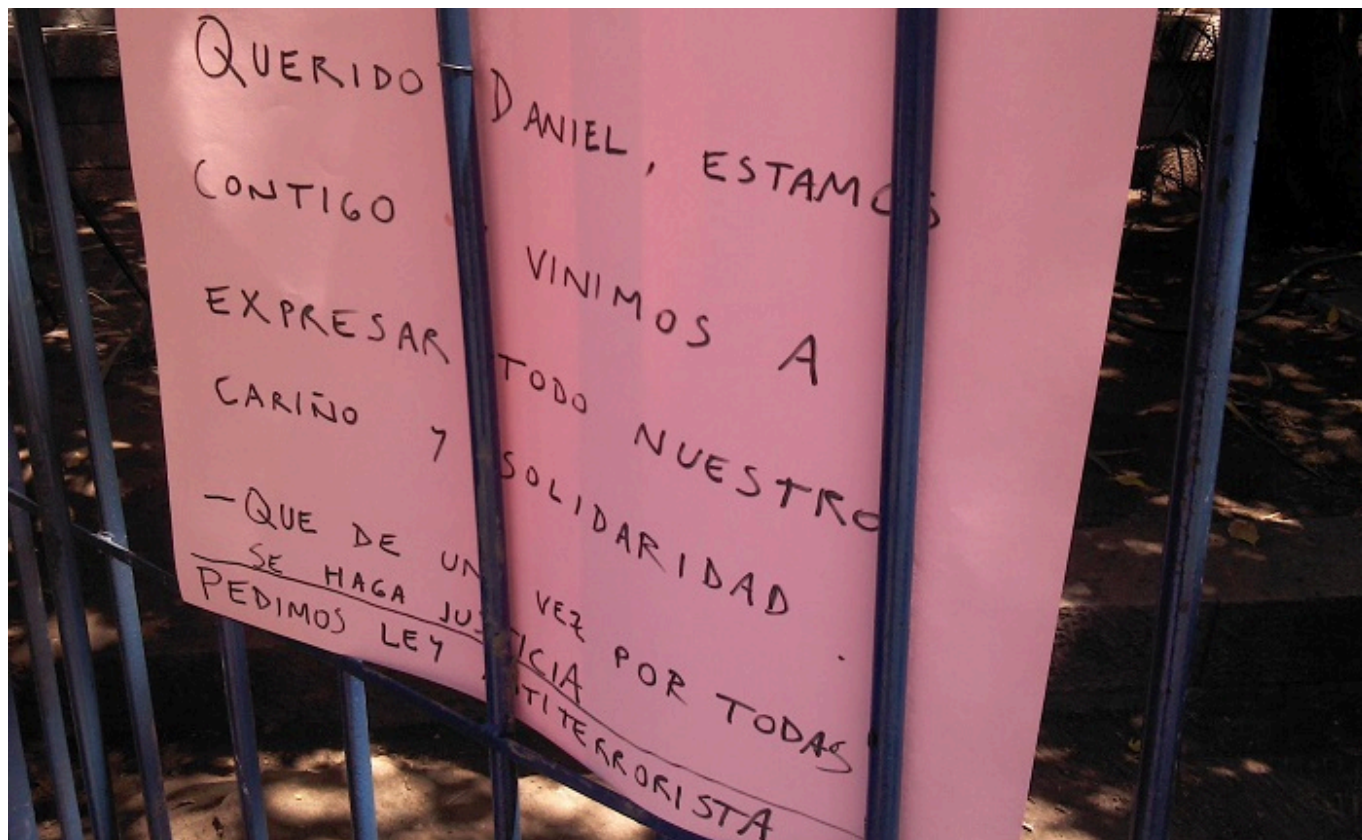 QUERIDO DANIEL, ESTAMOS
CONTIGO VINIMOS A
EXPRESAR TODO NUESTRO
CARIÑO Y SOLIDARIDAD.
- QUE DE UNA VEZ POR TODAS
SE HAGA JUSTICIA
PEDIMOS LEY ANTITERRORISTA